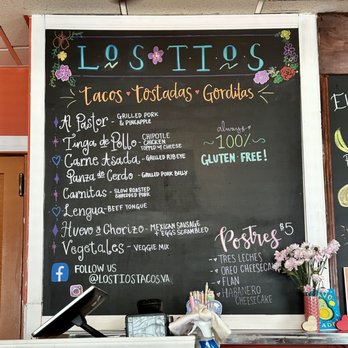 LOS TIOS
Tacos • Tostadas • Gorditas
Al Pastor - GRILLED PORK & PINEAPPLE
Tinga de Pollo - CHIPOTLE CHICKEN TOPPED W/ CHEESE
Carne Asada - GRILLED RIBEYE
Panza de Cerdo - GRILLED PORK BELLY
Carnitas - SLOW ROASTED SHREDDED PORK
Lengua - BEEF TONGUE
Huevo y Chorizo - MEXICAN SAUSAGE & EGGS SCRAMBLED
Vegetales - VEGGIE MIX
FOLLOW US
@LOSTIOSTACOSVA
always
~100%~
GLUTEN-FREE!
Postres $5
- TRES LECHES
- OREO CHEESECAKE
- FLAN
- HABANERO CHEESECAKE